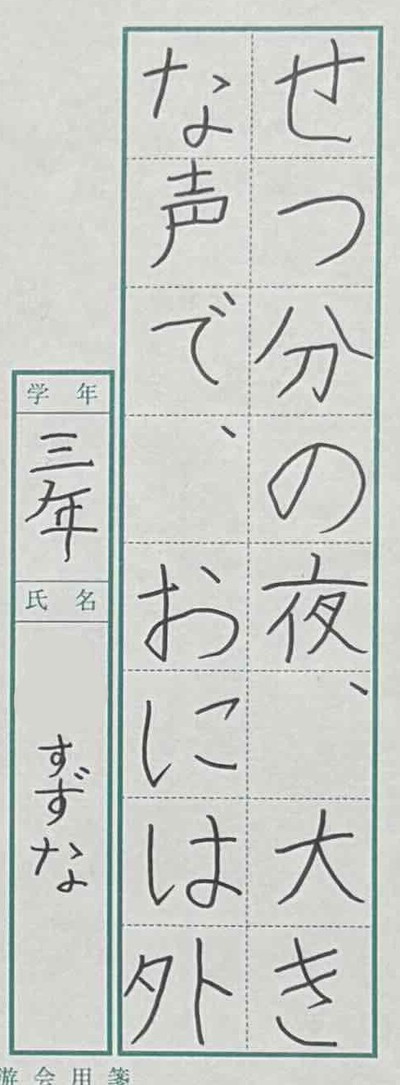 せつ分の夜、大き
な声で、おには外
学年
三年
氏名
すずな
遊会用箋